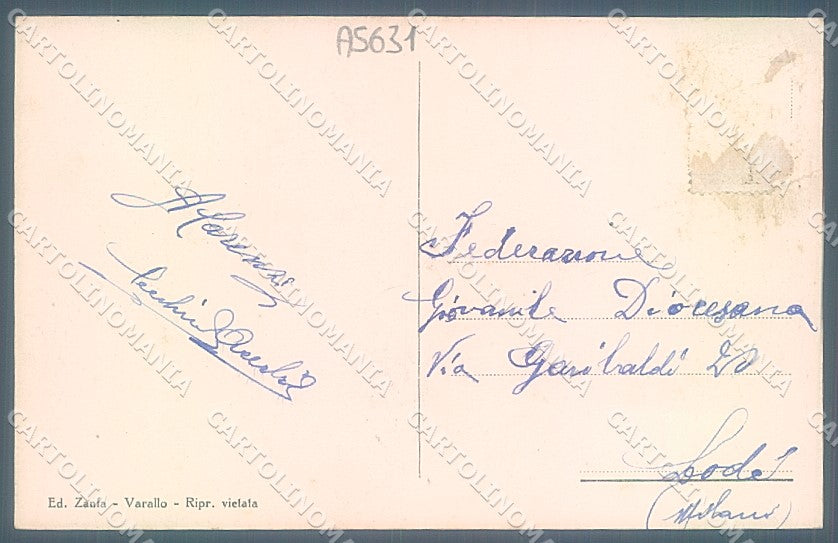 A5631
Federazione
Giovanile Diocesana
Via Garibaldi 20
Lodi
(Milano)
Ed. Zanfa - Varallo - Ripr. vietata
CARTOLINOMANIA